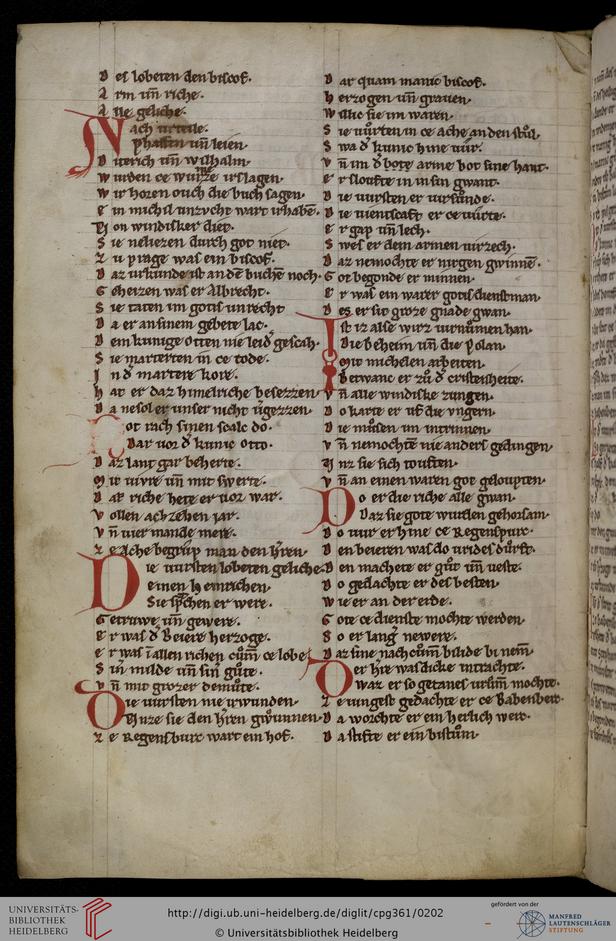 Des lobeten den biscof.
Arm uñ riche.
Alle geliche.
Nach urteile.
Phaffin uñ leien.
Diterich uñ Wilhalm.
Wurden ce wurze irslagen.
Wir horen ouch die buch sagen.
Ein michil unzvcht wart irhabē.
Von windisker diet.
Sie neliezen durch got niet.
Zu prage was ein biscof.
Daz urkunde ist an dē buchē noch.
Geheizen was er Albrecht.
Sie taten im gotis unrecht
Da er an sinem gebete lac.
Dem kunige otten nie leid gescah.
Sie marterten in ce tode.
In d martere kore.
Hat er daz himelriche besezzen
Da nesol er unser nicht ūgezzen.
Got rach sinen scalc do.
Dar uor d kunic otto.
Daz lant gar beherte.
Mit uivre uñ mit swerte.
Daz riche hete er uor war.
Vollen achzehen jar.
Vñ uier mande mere.
Ze Ache begrup man den h̄ren.
Die uursten lobeten geliche.
Einen heinrichen.
Sie sp̄chen er were.
Getruwe uñ gewere.
Er was d Beiere herzoge.
Er was ī allen richen cům ce lobe
Sin milde uñ sin gůte.
Vñ mit grozer demůte.
Die uursten nie irwunden.
Vnze sie den h̄ren gwunnen.
Ze Regensburc wart ein hof.
Dar quam manic biscof.
Herzogen uñ grauen.
Willic sie im waren.
Sie uůrten in ce ache an den stůl.
Swa d kunic hine uůr.
Vñ im d bote arme bot sine hant.
Er sloufte in in sin gwant.
Die uursten er uirsůnde.
Die uientscaft er ce uůrte.
Er gap uñ lech.
Swes er dem armen uirzech.
Daz nemochte er nirgen gwinnē.
Got begonde er minnen.
Er was ein warer gotis dienstman
Des er sit groze gnade gwan.
Ist iz alse wirz uirnumen han.
Die beheim uñ die polan.
Mit michelen arbeiten.
Betwanc er zů d cristenheite.
Vñ alle windiske zungen.
Do karte er uf die vngern.
Die můsen im intrinnen.
Vñ nemochte nie anders gedingen
Vnz sie sich touften.
Vñ an einen waren got geloupten
Do er die riche alle gwan.
Daz sie gote wurden gehorsam.
Do uur er hine ce Regenspurc.
Den beieren was do urides důrft.
Den machete er gůt uñ ueste.
Do gedachte er des besten.
Wie er an der erde.
Gote ce dienste mochte werden.
So er lang newere.
Daz sine nach cům bilide bi nem.
Der h̄re was dicke intrachte.
Waz er so getanes ursim mochte.
Ze iungest gedachte er ce Babenberc.
Da worchte er ein herlich werc.
Da stifte er ein bistům.
UNIVERSITÄTS-
BIBLIOTHEK
HEIDELBERG
http://digi.ub.uni-heidelberg.de/diglit/cpg361/0202
© Universitätsbibliothek Heidelberg
gefördert von der
MANFRED
LAUTENSCHLÄGER
STIFTUNG